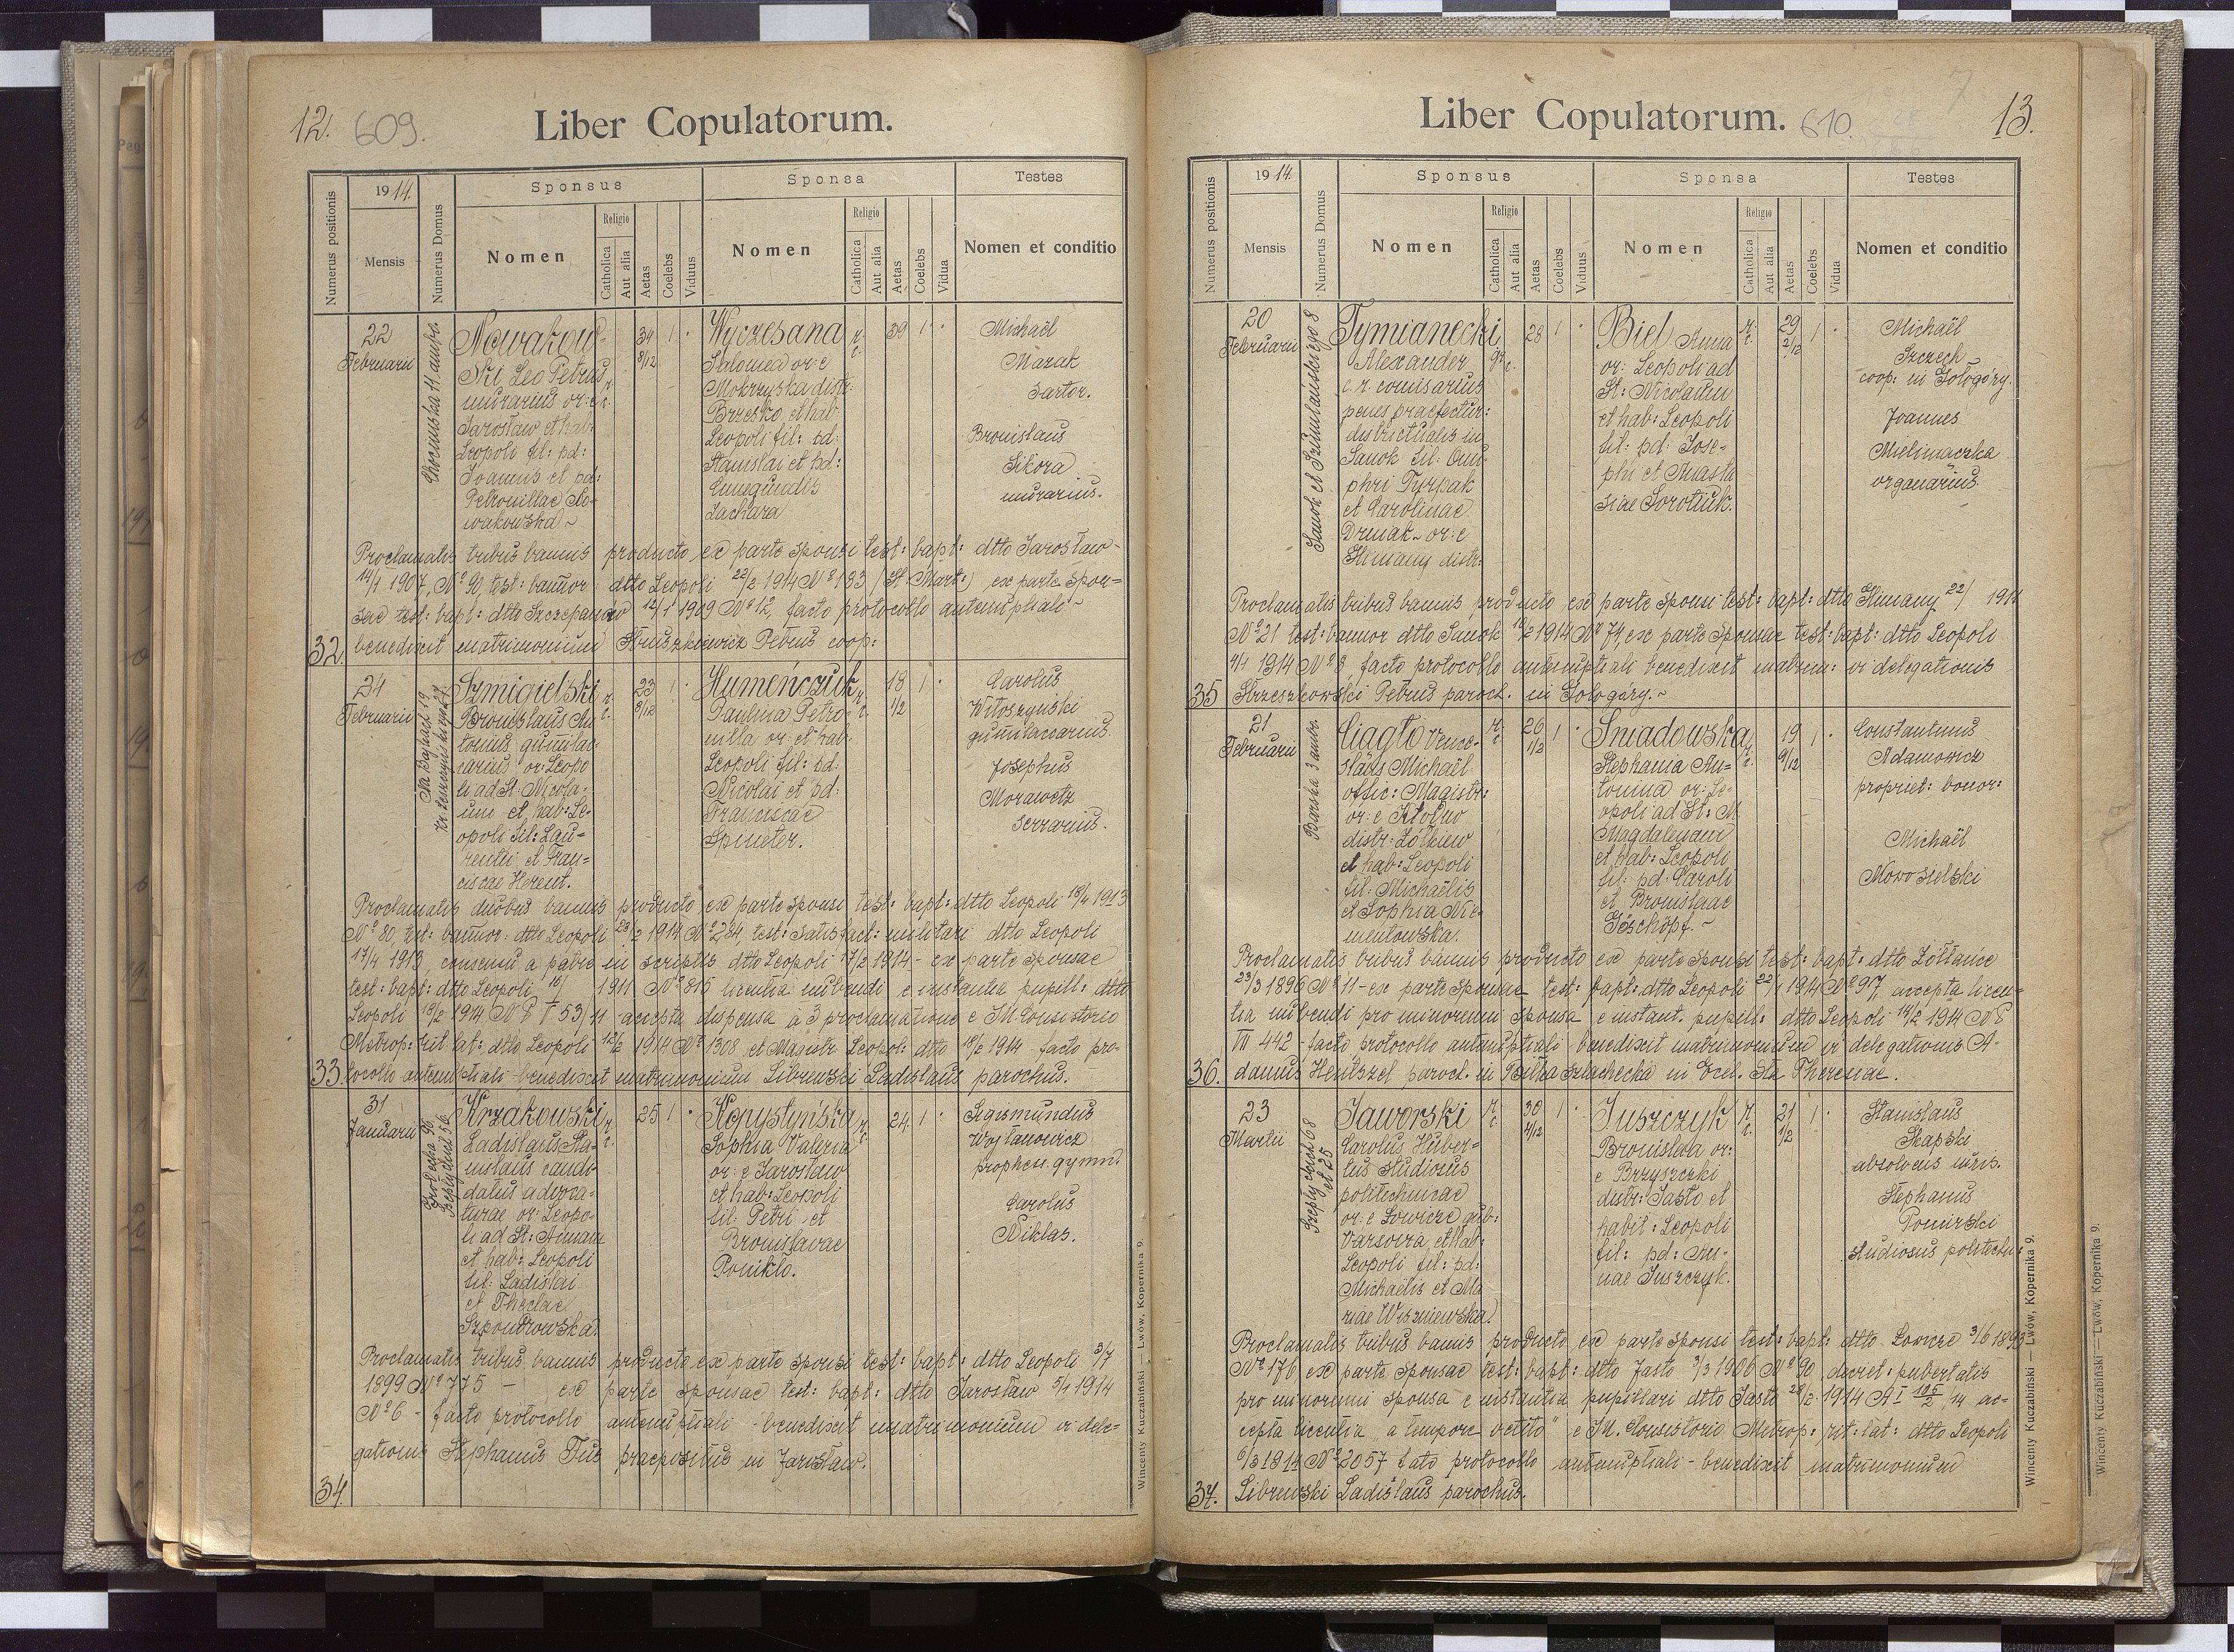 12.
609.
Liber Copulatorum.
Numerus positionis
1914.
Mensis
Numerus Domus
Sponsus
Nomen
Religio
Catholica
Aut alia
Aetas
Coelebs
Viduus
Sponsa
Nomen
Religio
Catholica
Aut alia
Aetas
Coelebs
Vidua
Testes
Nomen et conditio
22
Februarii
Nowakow-
ski Leo Petrus
murarius or: e
Jarosław et hab:
Leopoli fil: pd:
Joannis et pd:
Petronillae No-
wakowska ~
r. c.
34
8/12
1
Wyczesana
Salomea or: e
Mokrzyska distr:
Brzesko et hab:
Leopoli fil: pd:
Stanislai et pd:
Cunegundis
Zachara
r. c.
39
1
Michaël
Mazak
Sartor.
Bronislaus
Sikora
murarius.
Proclamatis tribus bannis producto ex parte sponsi test: bapt: dtto Jarosław
14/1 1907, Nº 90, test: bannor: dtto Leopoli 22/2 1914 Nº 193 (St. Mart:) ex parte spon=
sae test: bapt: dtto Szczepanów 12/1 1909 Nº 12, facto protocollo antenuptiali ~
32. benedixit matrimonium Struszkiewicz Petrus coop:
24
Februarii
Na Bajkach 19
Szmigielski
Bronislaus An
tonius gumila-
carius or: Leopo
li ad St. Nicola-
um et hab: Le-
opoli fil: Lau=
rentii et Fran=
ciscae Herent.
r. c.
23
8/12
1
Humeńczuk
Paulina Petro-
nilla or: et hab:
Leopoli fil: pd:
Nicolai et pd:
Franciscae
Spineter.
r. c.
18
1/2
1
Carolus
Witoszyński
gumilacarius.
Josephus
Morawetz
serrarius.
Proclamatis duobus bannis producto ex parte sponsi test: bapt: dtto Leopoli 18/4 1913
Nº 80, test: bannor: dtto Leopoli 23/2 1914 Nº 284, test: satisfact: militari dtto Leopoli
17/4 1913, consensu a patre in scriptis dtto Leopoli 17/2 1914 - ex parte sponsae
test: bapt: dtto Leopoli 1911 Nº 816 licentia nubendi e instantia pupill: dtto
Leopoli 1914 53/14 - accepta dispensa a 3 proclamatione e IM Consistorio
Metrop: rit: lat: dtto Leopoli 12/2 1914 Nº 1308 et Magistr. Leopol: dtto 18/2 1914 - facto pro-
33. tocollo antenuptiali - benedixit matrimonium Librewski Ladislaus parochus.
31
Januarii
Krzakowski
Ladislaus Sta-
nislaus candi-
datus advoca-
turae or: Leopo-
li ad St: Annam
et hab: Leopoli
fil: Ladislai
et Theclae
Szpondrowska.
r. c.
25
1
Kopystyńska
Sophia Valeria
or: e Jarosław
et hab: Leopoli
fil: Petri et
Bronislavae
Ponikło.
r. c.
24
1
Sigismundus
Wojtanowicz
prophess. gymn.
Carolus
Niklas.
Proclamatis tribus bannis producto ex parte sponsi test: bapt: dtto Leopoli 3/7
1899 Nº 775 - ex parte sponsae test: bapt: dtto Jarosław 5/1 1914
Nº 6 - facto protocollo antenuptiali - benedixit matrimonium vi dele=
gationis Stephanus Tus praepositus in Jarosław.
34.
Wincenty Kuczabiński — Lwów, Kopernika 9.
Liber Copulatorum.
610.
7
13.
Numerus positionis
1914.
Mensis
Numerus Domus
Sponsus
Nomen
Religio
Catholica
Aut alia
Aetas
Coelebs
Viduus
Sponsa
Nomen
Religio
Catholica
Aut alia
Aetas
Coelebs
Vidua
Testes
Nomen et conditio
20
Februarii
Sanok et Szumlańskiego 8
Tymianecki
Alexander
c. r. comisarius
penes praefectur:
districtualis in
Sanok fil: Onu-
phri Tyrpak
et Carolinae
Drmak ~ or: e
Slimany distr:
gr. c.
28
1
Biel Anna
or: Leopoli ad
St: Nicolaum
et hab: Leopoli
fil: pd: Jose=
phi et Anasta
siae Sorotiuk.
r. c.
29
2/12
1
Michaël
Szczech
coop: in Gołogóry.
Joannes
Mielniaczka
organarius.
Proclamatis tribus bannis producto ex parte sponsi test: bapt: dtto Slimany 22/ 1911
Nº 21 test: bannor dtto Sanok 1914 Nº 74, ex parte sponsae test: bapt: dtto Leopoli
4/1 1914 Nº 8 facto protocollo antenuptiali benedixit matrim: vi delegationis
35 Strzeszkowski Petrus paroch. in Gołogóry. ~
21
Februarii
Barska 3
Ciągło Vence-
slaus Michaël
offic: Magistr:
or: e Kłodno
distr: Żółkiew
et hab: Leopoli
fil: Michaëlis
et Sophia Nie-
mentowska.
r. c.
26
1/2
1
Śniadowska
Stephania An=
tonina or: Le-
opoli ad St: M.
Magdalenam
et hab: Leopoli
fil: pd: Caroli
et Bronislaae
Göschöpf. ~
r. c.
19
9/12
1
Constantinus
Adamowicz
propriet: bonor:
Michaël
Nowosielski
Proclamatis tribus bannis producto ex parte sponsi test: bapt: dtto Żółtańce
23/3 1896 Nº 11 - ex parte sponsae test: bapt: dtto Leopoli 22/1 1914 Nº 97, accepta licen=
tia nubendi pro minorenni sponsa e instant. pupill: dtto Leopoli 14/2 1914
VII 442 - facto protocollo antenuptiali - benedixit matrimonium vi delegationis A-
36. damus Hentszel paroch. in Biłka szlachecka in Eccl. Sta Theresiae.
23
Martii
Szeptyckich 68
et 25
Jaworski
Carolus Huber=
tus studiosus
politechnicae
or: e Łowicze gub:
Varsovia, et hab:
Leopoli fil: pd:
Michaëlis et Ma
riae Wiszniewska.
r. c.
30
4/12
1
Juszczyk
Bronislava or:
e Brzyszczki
distr: Jasło et
habit: Leopoli
fil: pd: An-
nae Juszczyk.
r. c.
21
1/2
1
Stanislaus
Skapski
absolvens iuris.
Stephanus
Pomirski
studiosus politechn:
Proclamatis tribus bannis producto ex parte sponsi test: bapt: dtto Łowicze 3/6 1893
Nº 176 ex parte sponsae test: bapt: dtto Jasło 3/3 1906 Nº 90, decret: pubertatis
pro minorenni sponsa e instantia pupillari dtto Jasło 28/2 1914 A I 195/2 /14 ac-
cepta licentia "a tempore vetito" e IM. Consistorio Metrop: rit: lat: dtto Leopoli
6/3 1914 Nº 2057 fato protocollo antenuptiali - benedixit matrimonium
37. Librewski Ladislaus parochus.
Wincenty Kuczabiński — Lwów, Kopernika 9.
Wincenty Kuczabiński — Lwów, Kopernika 9.